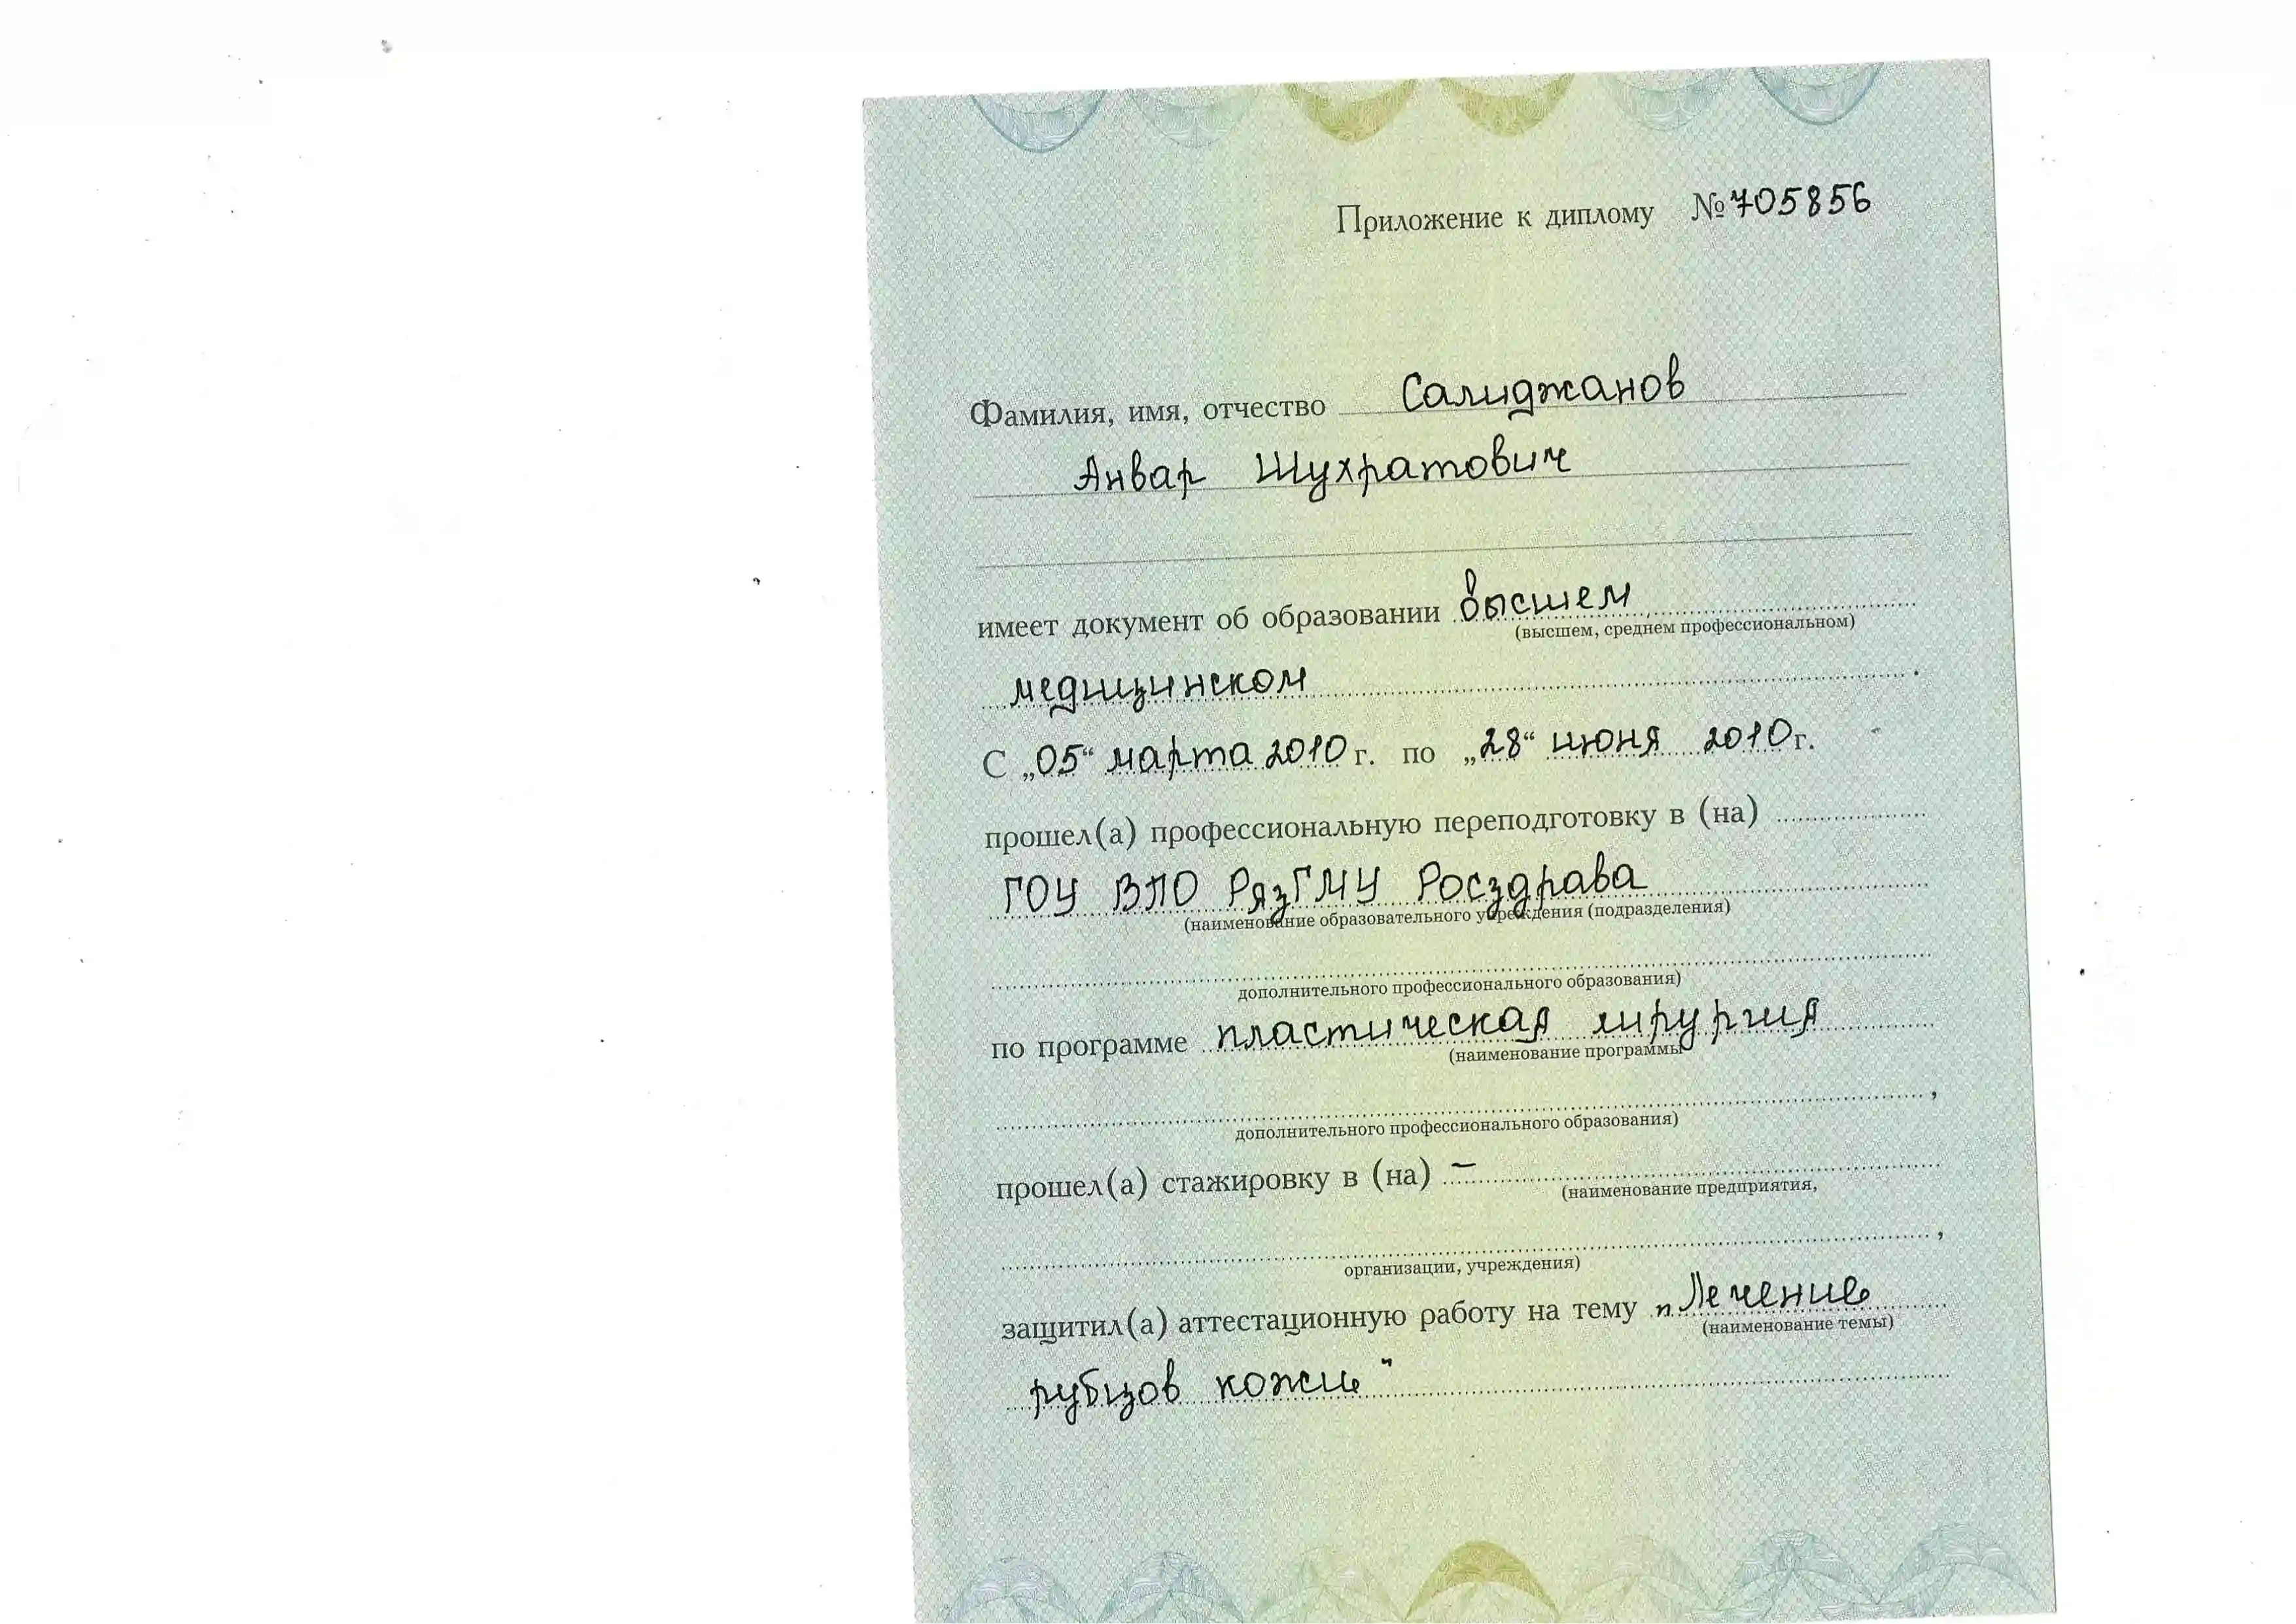 Приложение к диплому №705856
Фамилия, имя, отчество Салиджанов
Анвар Шухратович
имеет документ об образовании высшем
(высшем, среднем профессиональном)
медицинском.
С „05“ марта 2010 г. по „28“ июня 2010 г.
прошел(а) профессиональную переподготовку в (на)
ГОУ ВПО РязГМУ Росздрава
(наименование образовательного учреждения (подразделения)
дополнительного профессионального образования)
по программе пластическая хирургия
(наименование программы
,
дополнительного профессионального образования)
прошел(а) стажировку в (на) —
(наименование предприятия,
,
организации, учреждения)
защитил(а) аттестационную работу на тему „Лечение
(наименование темы)
рубцов кожи"